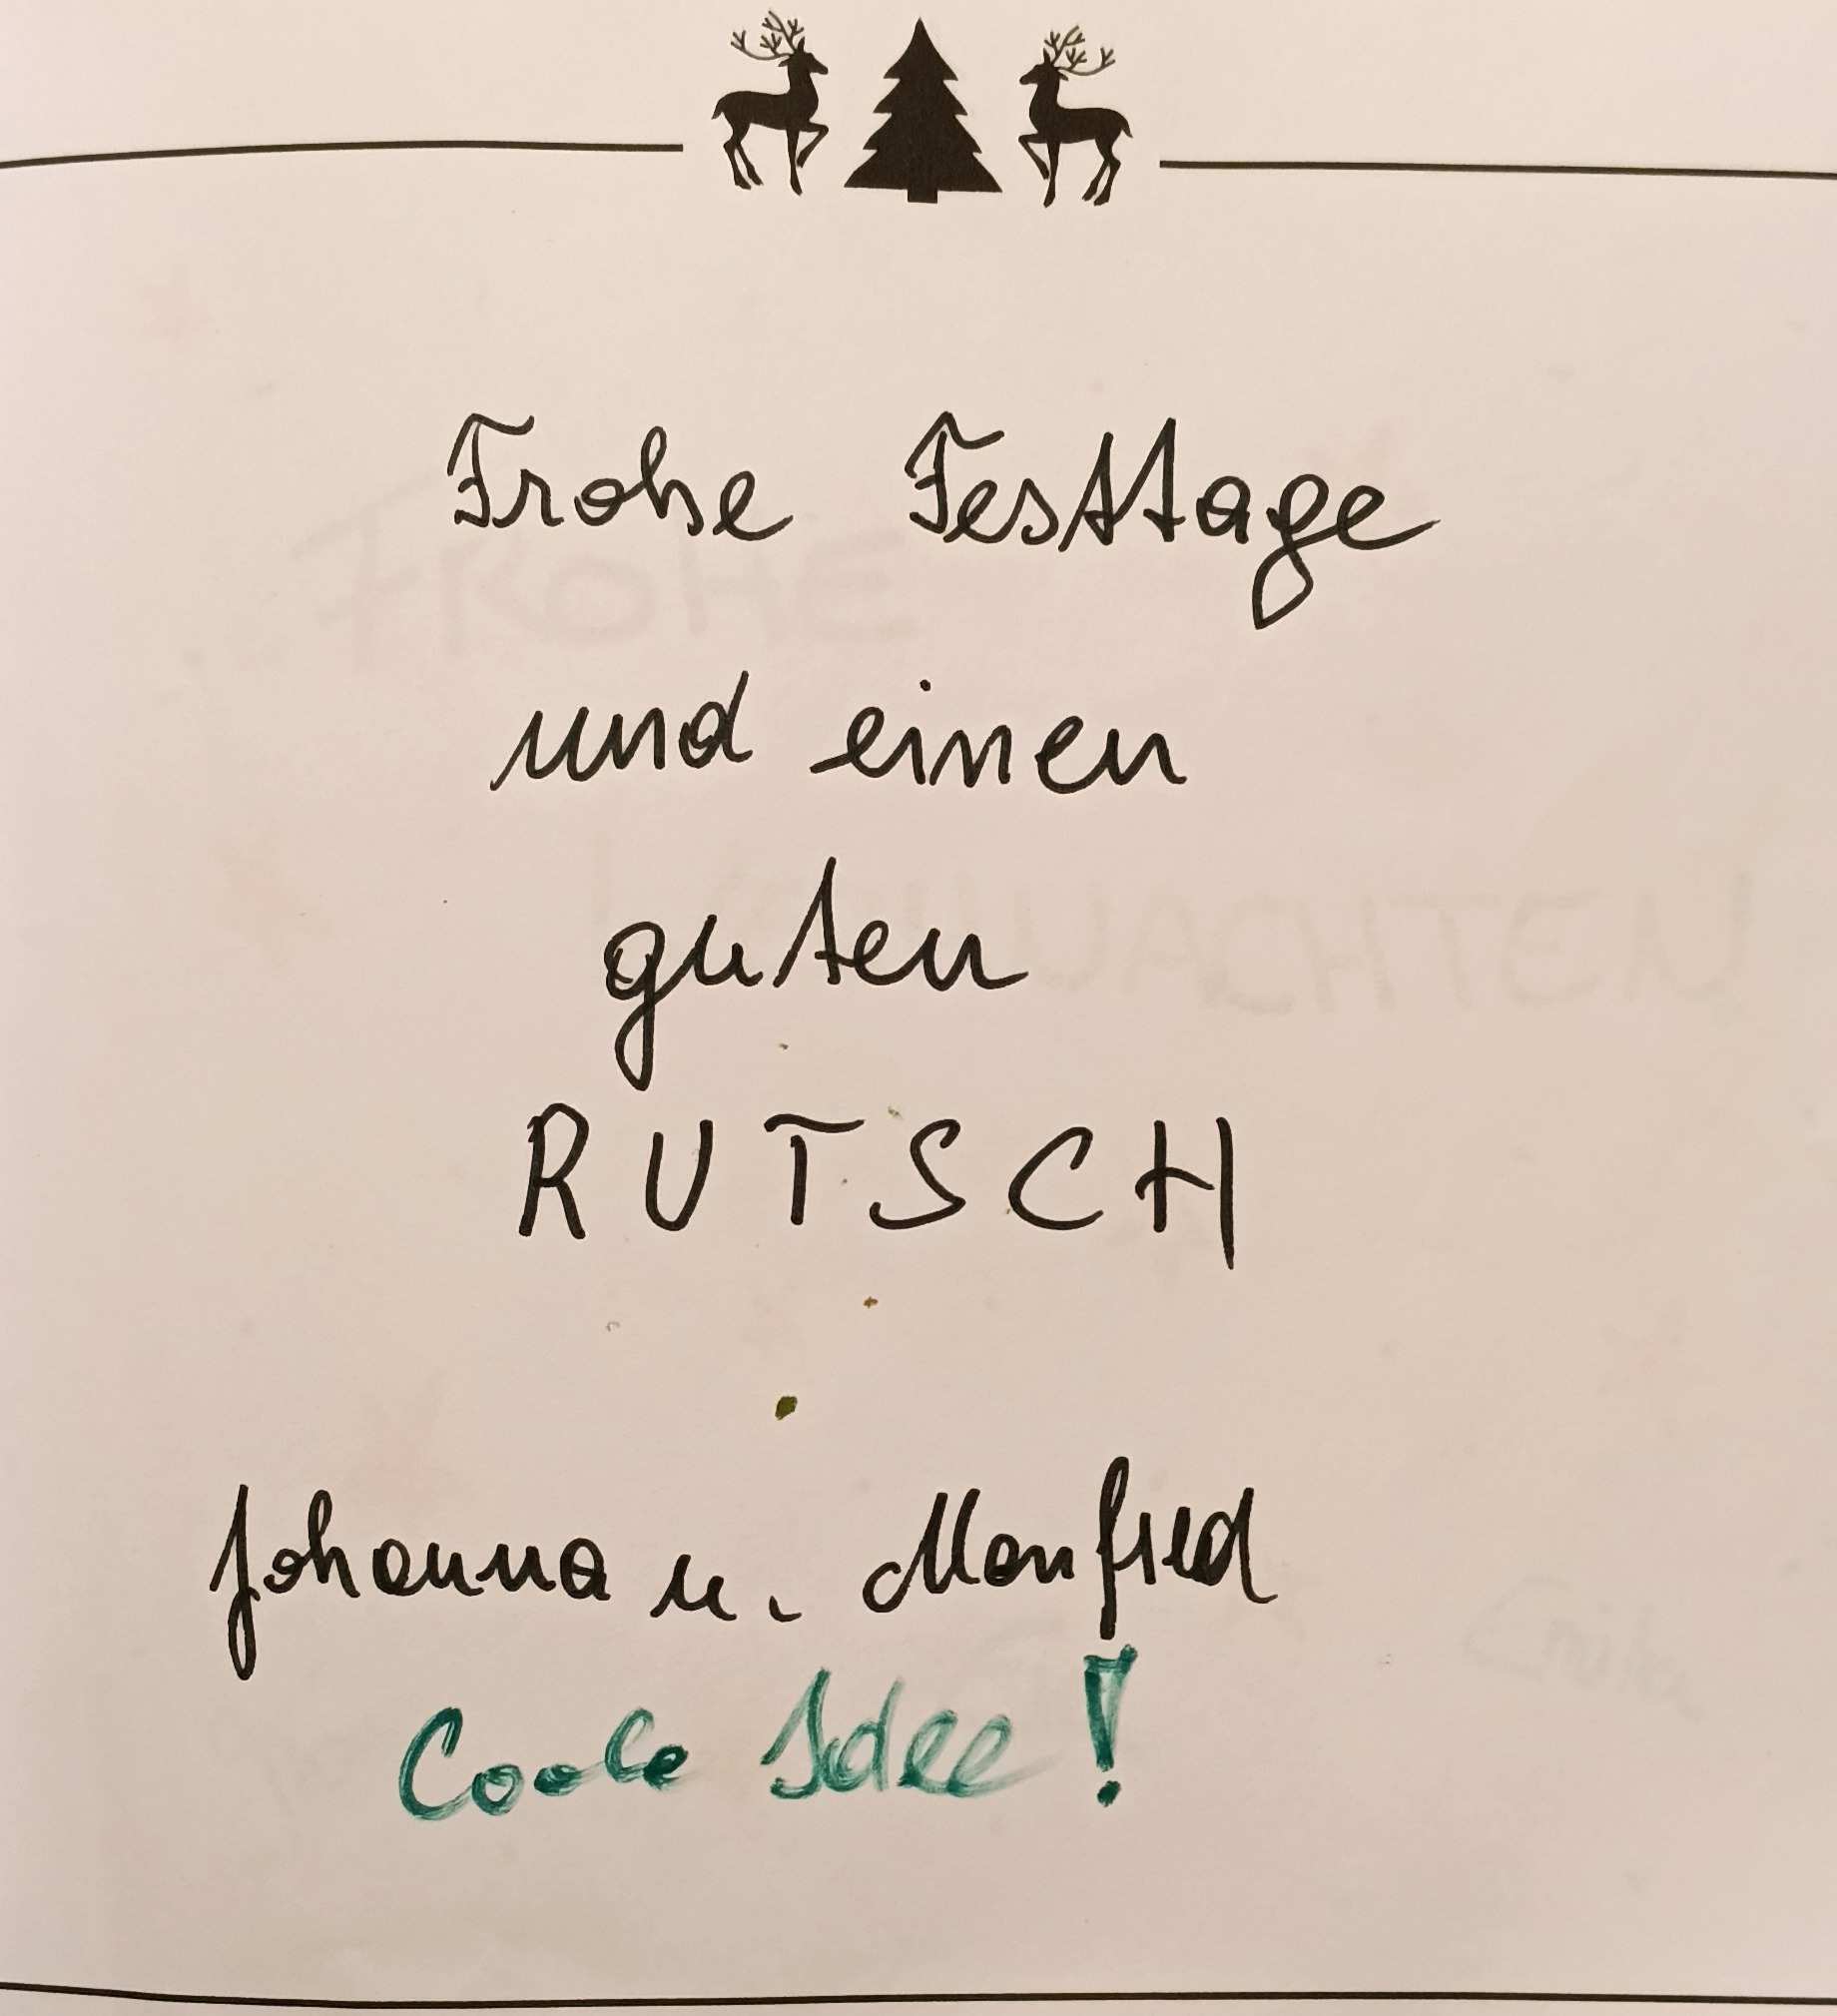 Frohe Festtage
und einen
guten
RUTSCH
Johanna u. Manfred
Coole Idee!